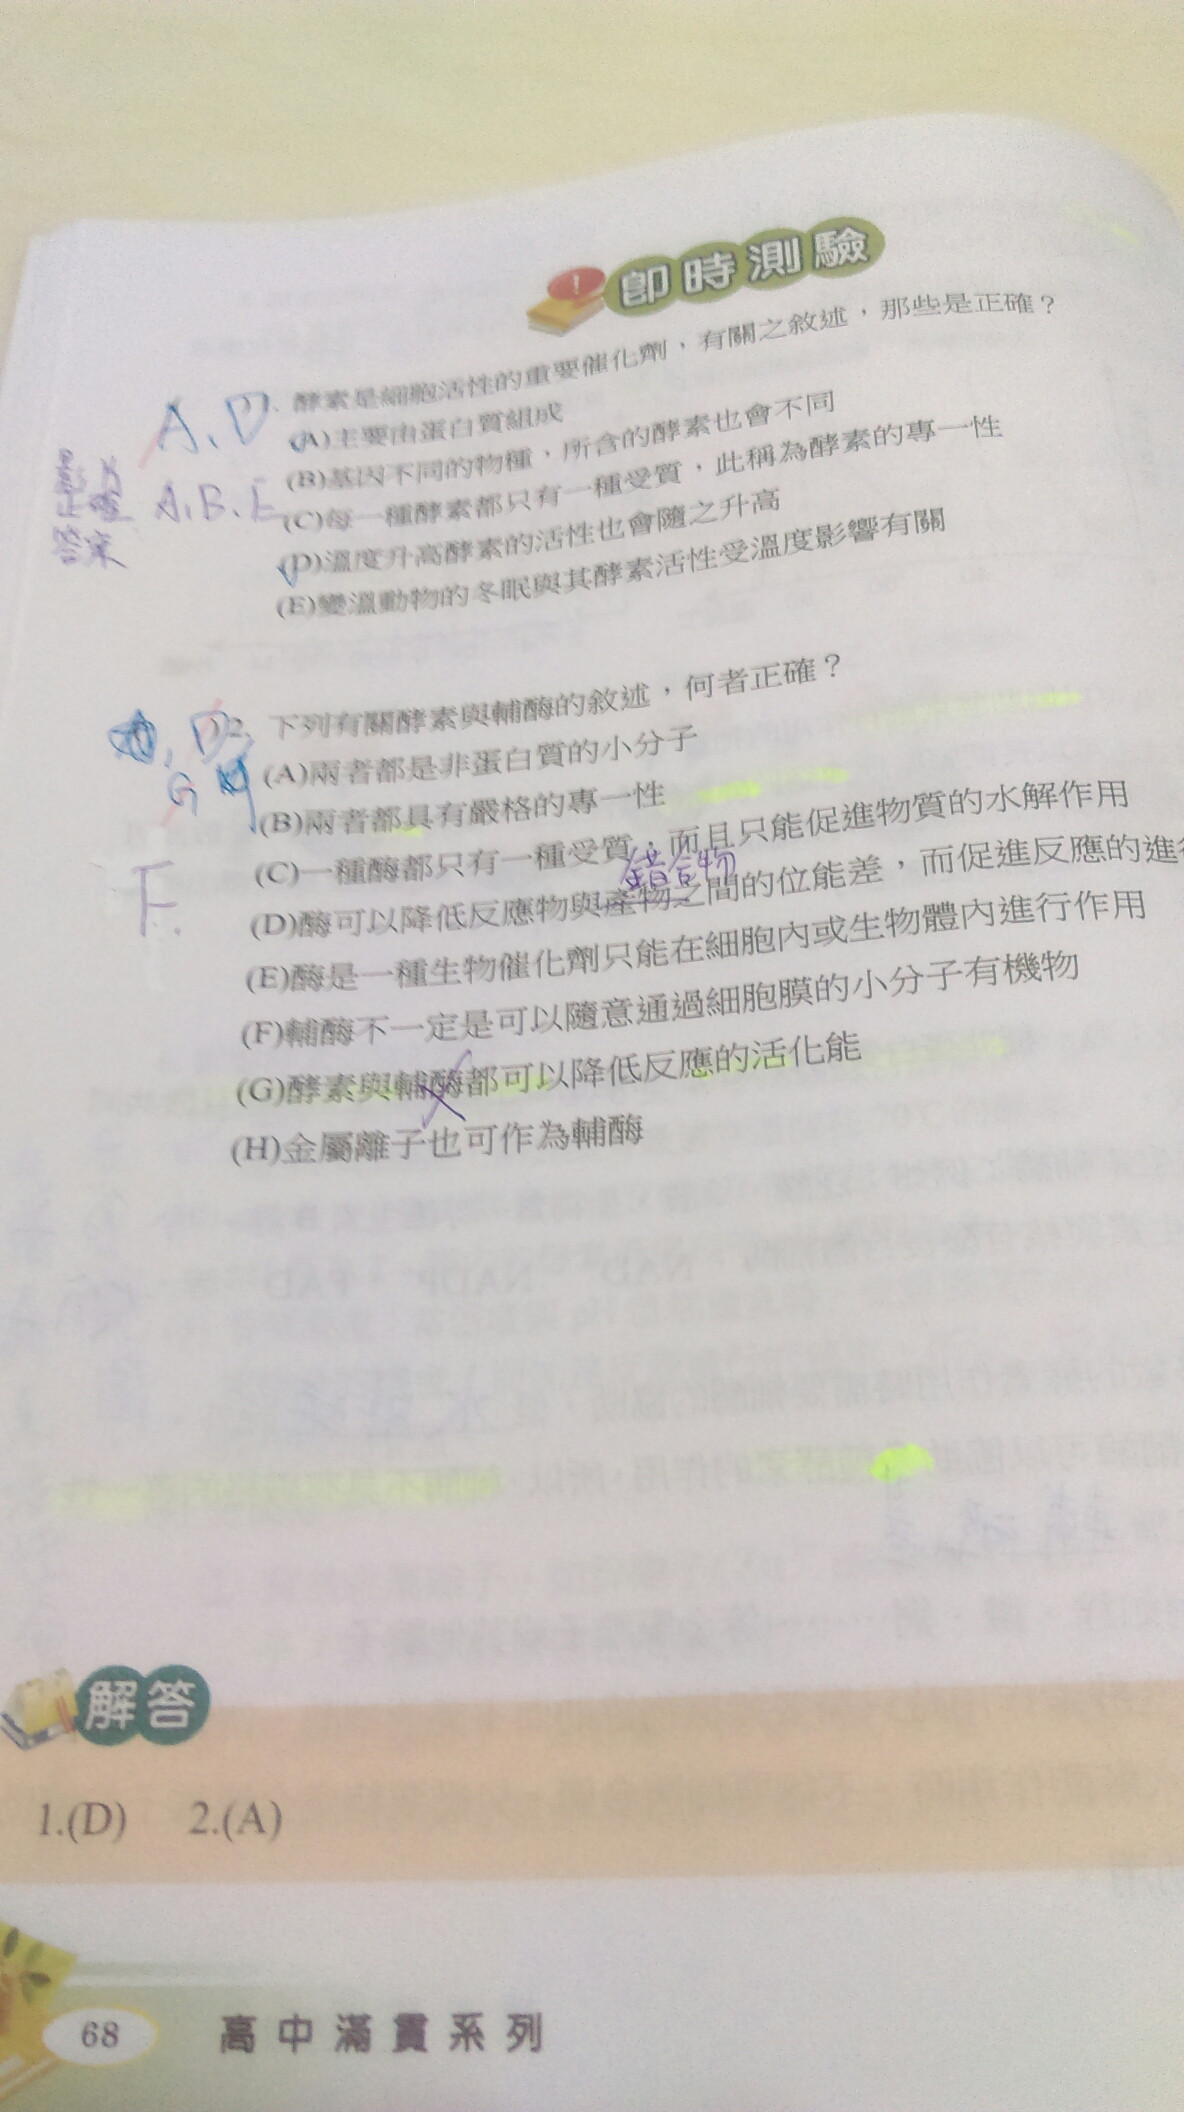 即時測驗
A、D 1. 酵素是細胞活性的重要催化劑，有關之敘述，那些是正確？
(A)主要由蛋白質組成
(B)基因不同的物種，所含的酵素也會不同
影片正確答案 A、B、E
(C)每一種酵素都只有一種受質，此稱為酵素的專一性
(D)溫度升高酵素的活性也會隨之升高
(E)變溫動物的冬眠與其酵素活性受溫度影響有關
D 2. 下列有關酵素與輔酶的敘述，何者正確？
G
(A)兩者都是非蛋白質的小分子
(B)兩者都具有嚴格的專一性
(C)一種酶都只有一種受質，而且只能促進物質的水解作用
錯合物
F
(D)酶可以降低反應物與產物之間的位能差，而促進反應的進行
(E)酶是一種生物催化劑只能在細胞內或生物體內進行作用
(F)輔酶不一定是可以隨意通過細胞膜的小分子有機物
(G)酵素與輔酶都可以降低反應的活化能
(H)金屬離子也可作為輔酶
解答
1.(D) 2.(A)
68 高中滿貫系列